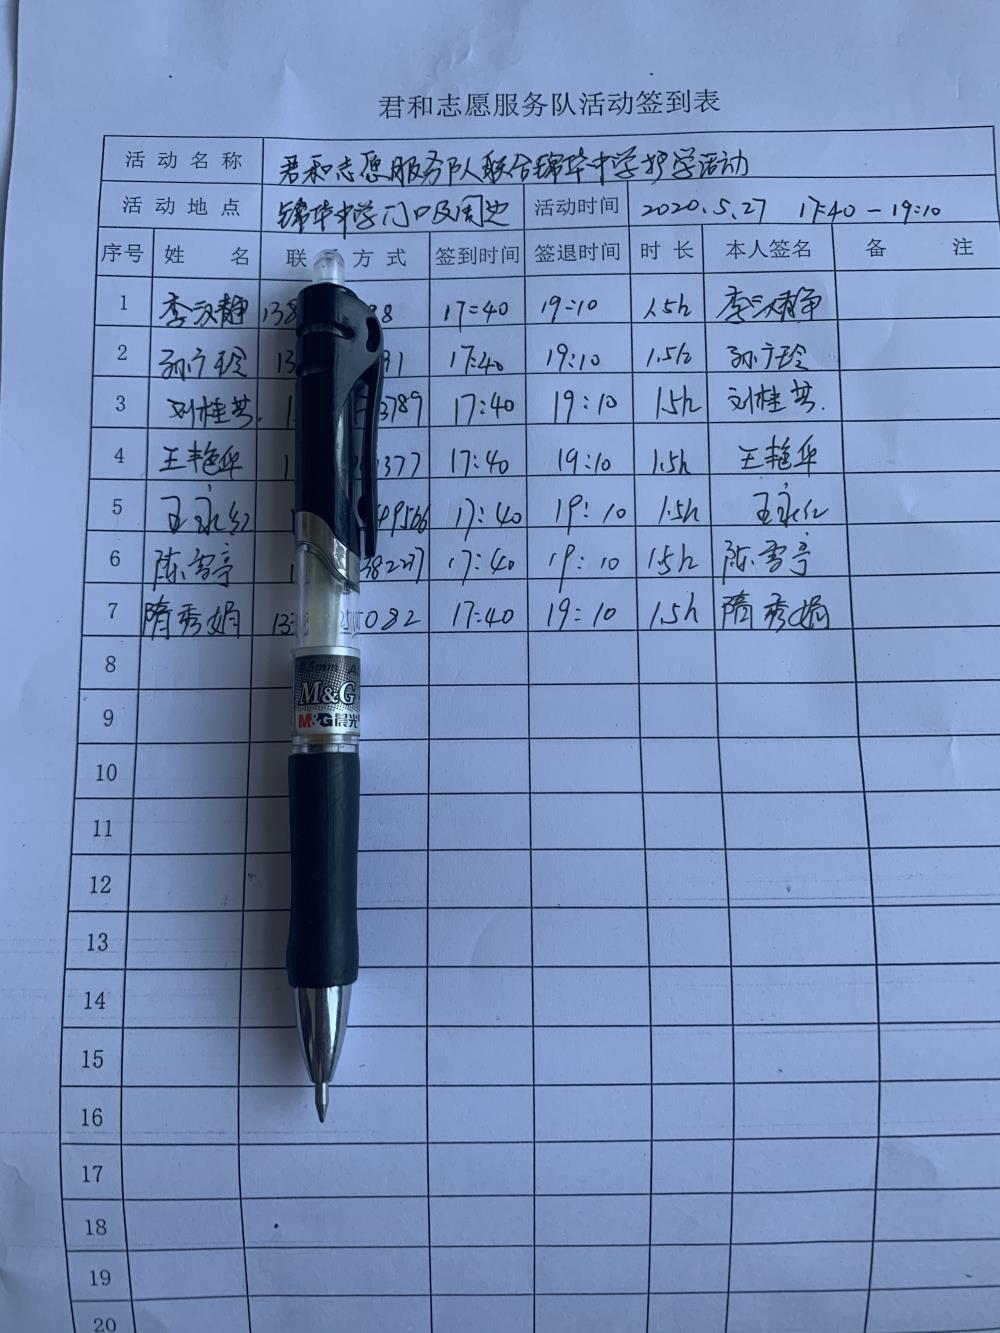 君和志愿服务队活动签到表
活动名称 君和志愿服务队联合锦华中学护学活动
活动地点 锦华中学门口及周边 活动时间 2020.5.27 17:40-19:10
序号 姓名 联 方式 签到时间 签退时间 时长 本人签名 备注
1 李汉静 138 8 17:40 19:10 1.5h 李汉静
2 孙广玲 13 91 17:40 19:10 1.5h 孙广玲
3 刘桂芸. 1 3789 17:40 19:10 1.5h 刘桂芸.
4 王艳华 1 1377 17:40 19:10 1.5h 王艳华
5 王永红 1 49566 17:40 19:10 1.5h 王永红
6 陈雪亭 1 38227 17:40 19:10 1.5h 陈雪亭
7 隋秀娟 13 082 17:40 19:10 1.5h 隋秀娟
8
0.5mm
M&G
9
M&G晨光
10
11
12
13
14
15
16
17
18
19
20